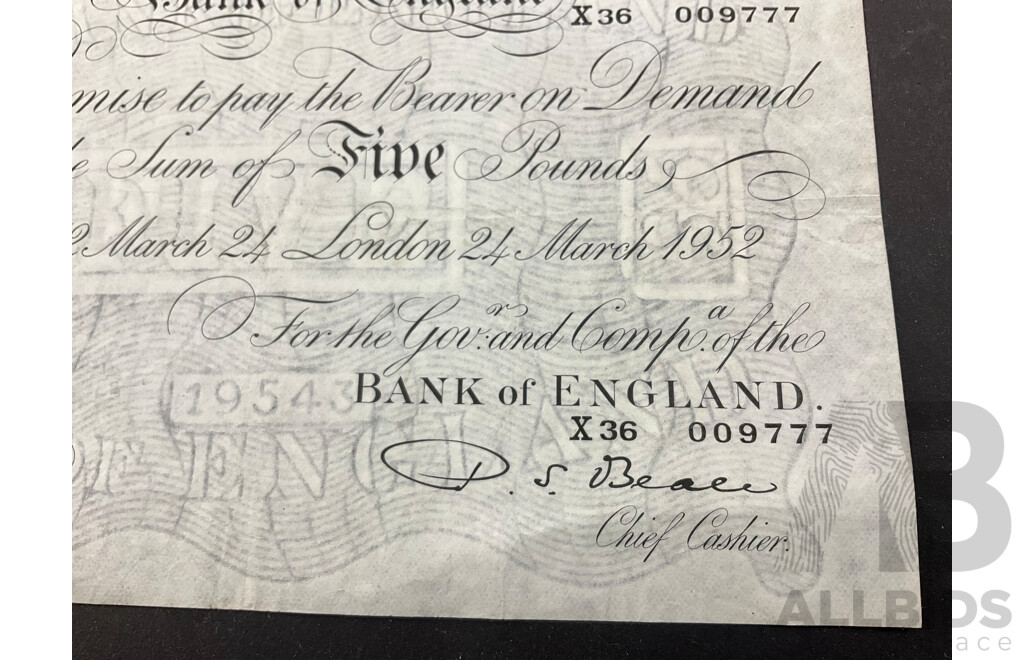 Bank of England
X36 009777
mise to pay the Bearer on Demand
e Sum of Five Pounds
2 March 24 London 24 March 1952
For the Govr. and Compa. of the
19543
BANK of ENGLAND.
X36 009777
OF ENGLAND
D. S. Beale
Chief Cashier.
B
ALLBIDS
ace